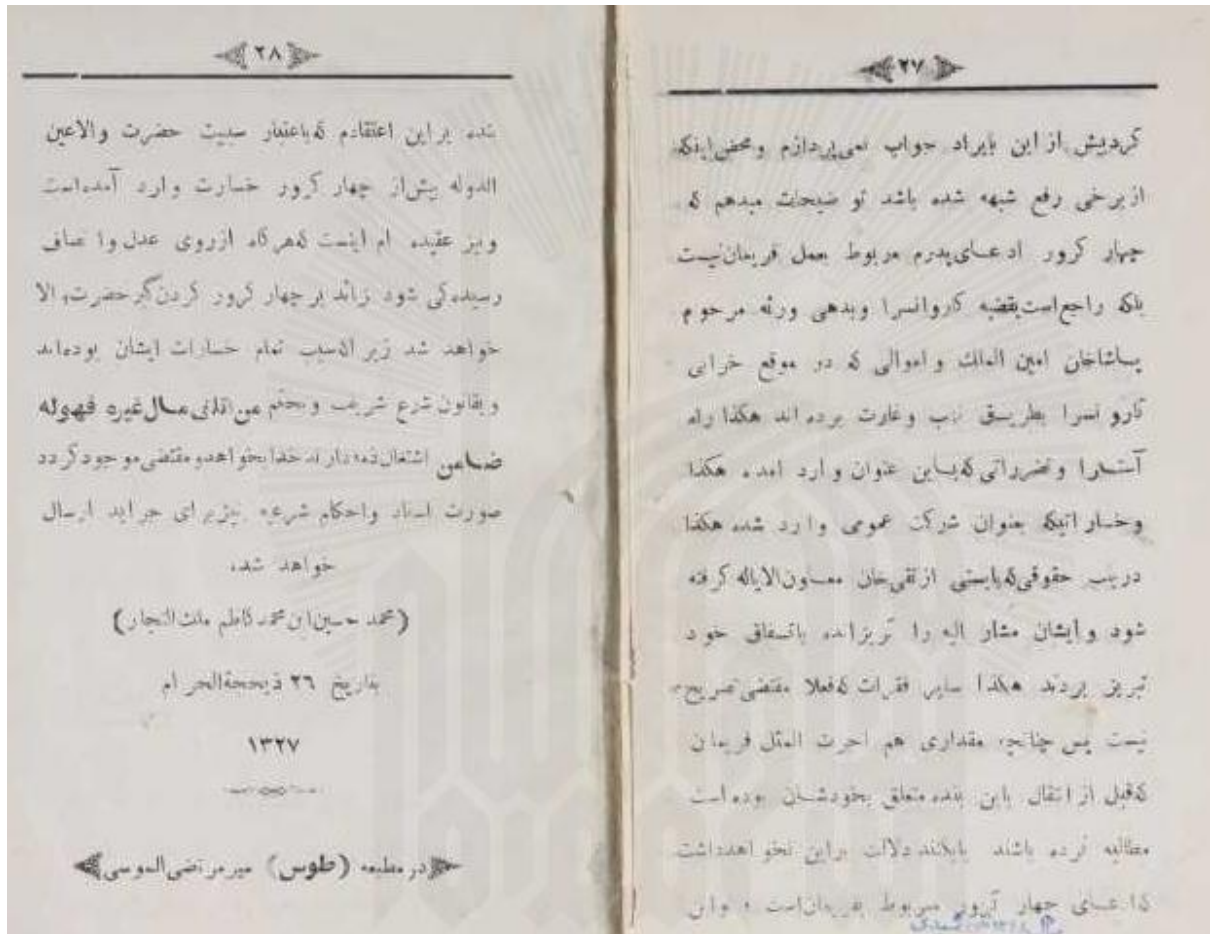 ۲۷
کردیش از این بایراد جواب نمی‌پردازم ومحض اینکه
از برخی رفع شبهه شده باشد تو ضیحات میدهم که
چهار کرور اد عـای پدرم مربوط بعمل فریمان نیست
بلکه راجع است بقضیه کاروانسرا وبدهی ورثه مرحوم
پـاشاخان امین الملک و اموالی که در موقع خرابی
کارو انسرا بطریـق نهب وغارت برده اند هکذا راه
آستـارا وتضرراتی که بـاین عنوان وارد امده هکذا
وخسار اتیکه بعنوان شرکت عمومی وارد شده هکذا
درباب حقوقی که بایستی از تقی خان معـاون الایاله گرفته
شود وایشان مشار الیه را گریزانده باتـفاق خود
تبریز بردند هکذا سایر فقرات که فعلا مقتضی تصریح
نیست پس چنانچه مقداری هم اجرت المثل فریمان
که قبل از انتقال باین بنده متعلق بخودشـان بوده است
مطالبه کرده باشند یابکنند دلالت براین نخو اهدداشت
که اد عـای چهار کرور مربوط بفریمان است و این
۲۸
بنده بر این اعتقادم که باعتبار سببیت حضرت والاعین
الدوله بیش از چهار کرور خسارت وارد آمده است
ونیز عقیده ام اینست که هر گاه ازروی عدل وا نصاف
رسیده گی شود زائد بر چهار کرور کردن گیر حضرت والا
خواهد شد زیر اکه سبب تمام خسارات ایشان بوده اند
و بقانون شرع شریف وبحکم من اتلف مـال غیره فهو له
ضـامن اشتغال ذمه دارند خدا بخواهد و مقتضی موجود گردد
صورت اسناد واحکام شرعیه نیز برای جراید ارسال
خواهد شد
(محمد حسین ابن محمد کاظم ملک التجار)
بتاریخ ۲۶ ذیحجةالحرام
۱۳۲۷
در مطبعه (طوس) میر مرتضی الموسوی